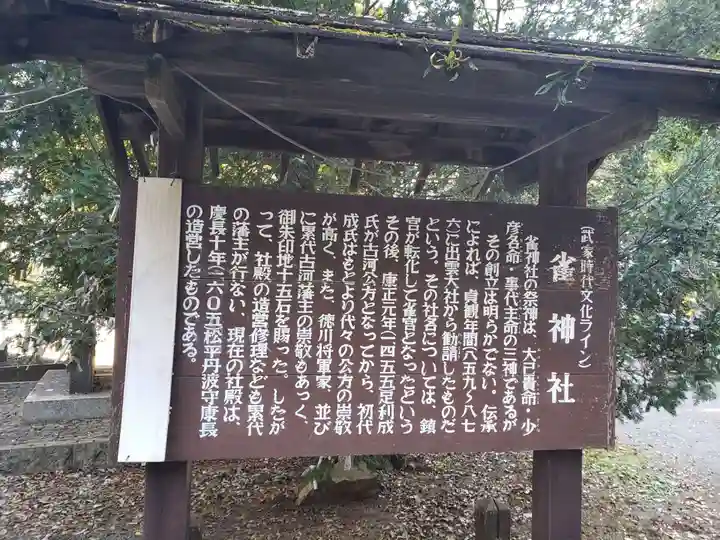 (武家時代文化ライン)
雀神社
雀神社の祭神は、大己貴命・少
彦名命・事代主命の三神であるが
その創立は明らかでない。伝承
によれば、貞観年間(八五九〜八七
六)に出雲大社から勧請したものだ
という。その社名については、鎮
宮が転化して雀宮となったという
その後、康正元年(一四五五足利成
氏が古河公方となってから、初代
成氏はもとより代々の公方の崇敬
が高く、また、徳川将軍家、並び
に累代古河藩主の崇敬もあつく、
御朱印地十五石を賜った。したが
って、社殿の造営修理なども累代
の藩主が行ない、現在の社殿は、
慶長十年(一六〇五松平丹波守康長
の造営したものである。